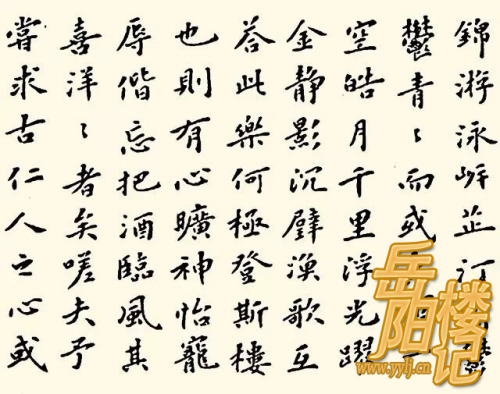 錦游泳岸芷汀鬱
鬱青〻而或
空皓月千里浮光躍
金静影沉璧漁歌互
荅此樂何極登斯樓
也則有心曠神怡寵
辱偕忘把酒臨風其
喜洋〻者矣嗟夫予
嘗求古仁人之心或
岳阳楼记
www.yylj.cn